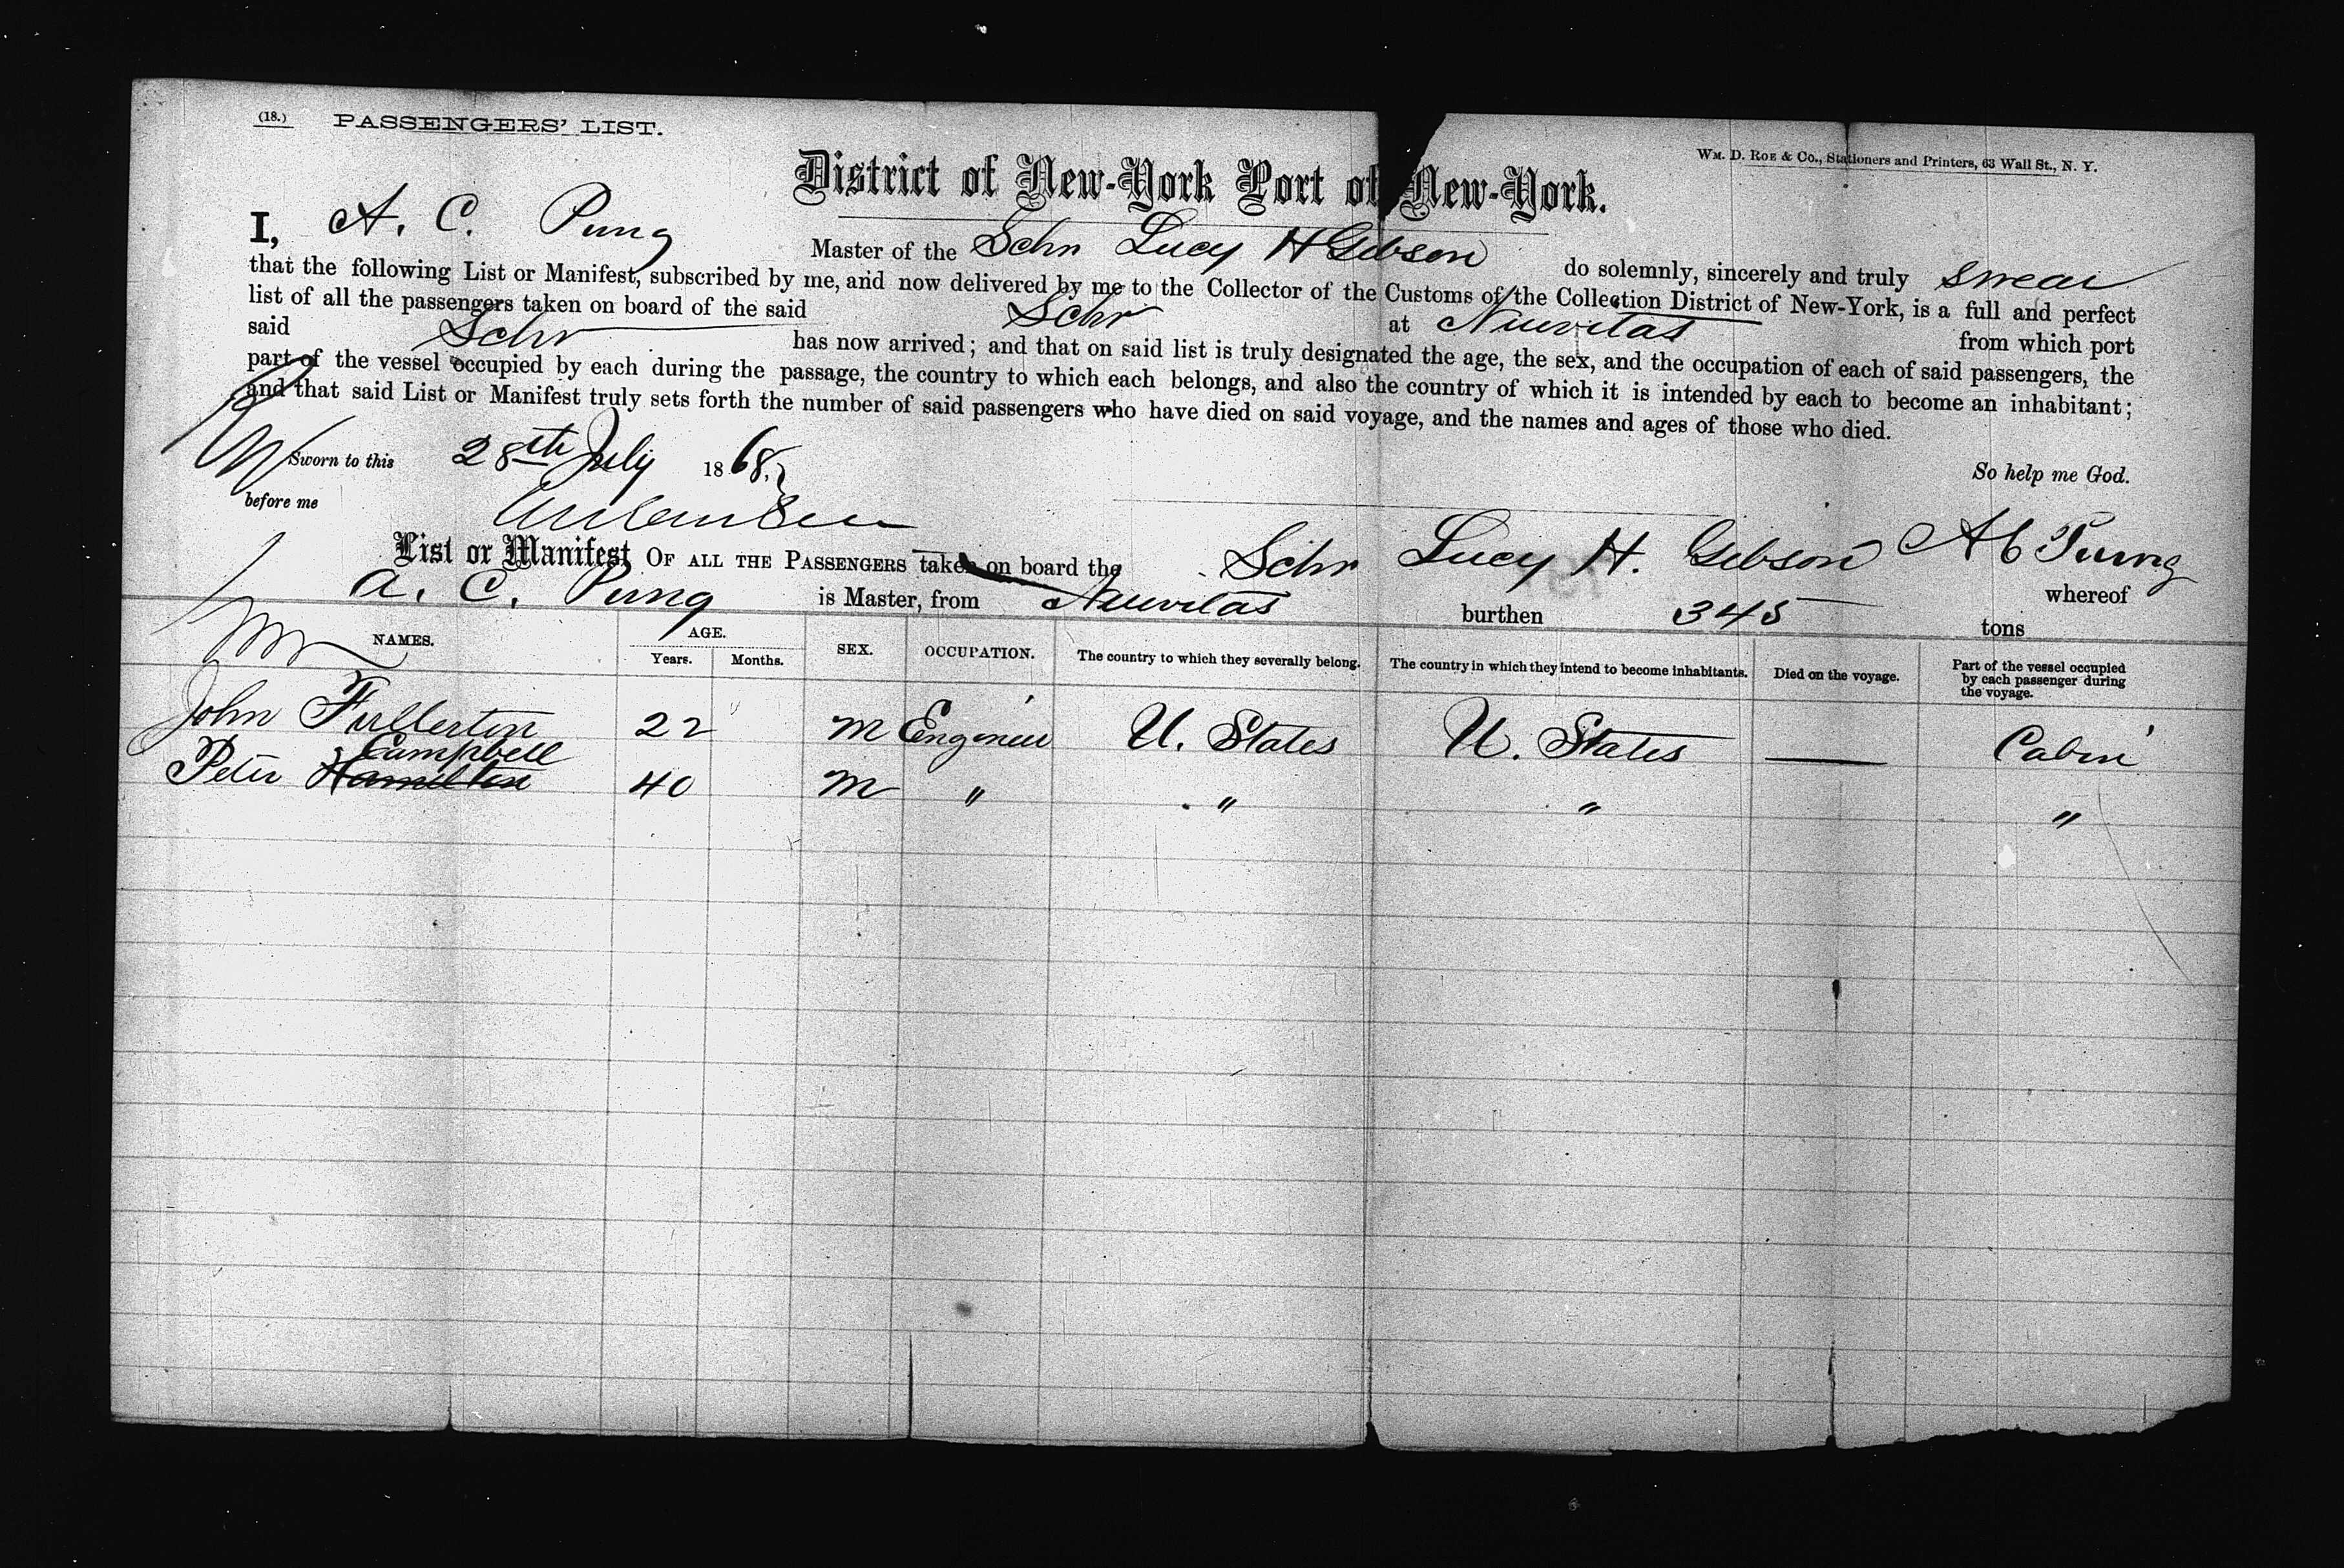 (18.) PASSENGERS' LIST.
Wm. D. Roe & Co., Stationers and Printers, 63 Wall St., N. Y.
District of New-York Port of New-York.
I, A. C. Pung Master of the Schr Lucy H Gibson do solemnly, sincerely and truly swear
that the following List or Manifest, subscribed by me, and now delivered by me to the Collector of the Customs of the Collection District of New-York, is a full and perfect
list of all the passengers taken on board of the said Schr at Nuevitas from which port
said Schr has now arrived; and that on said list is truly designated the age, the sex, and the occupation of each of said passengers, the
part of the vessel occupied by each during the passage, the country to which each belongs, and also the country of which it is intended by each to become an inhabitant;
and that said List or Manifest truly sets forth the number of said passengers who have died on said voyage, and the names and ages of those who died.
So help me God.
Sworn to this 28th July 1868.
before me
A C Pung
List or Manifest OF ALL THE PASSENGERS taken on board the Schr Lucy H. Gibson whereof
A. C. Pung is Master, from Nuevitas burthen 345 tons
NAMES. AGE. SEX. OCCUPATION. The country to which they severally belong. The country in which they intend to become inhabitants. Died on the voyage. Part of the vessel occupied by each passenger during the voyage.
Years. Months.
John Fullerton 22 M Engineer U. States U. States — Cabin
Campbell
Peter Hamilton 40 M " " " "